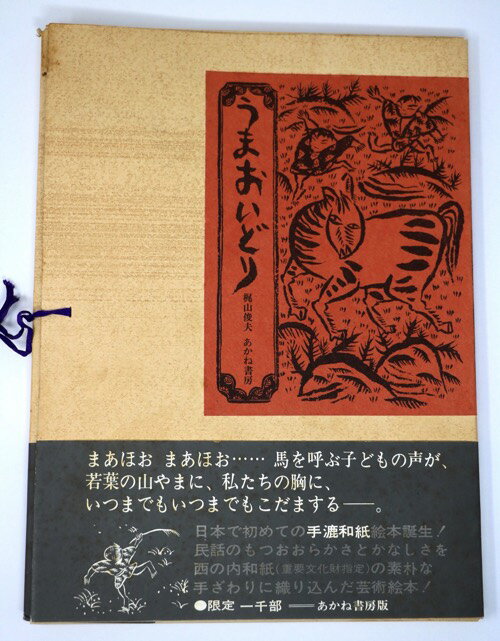 うまおいどり
梶山俊夫 あかね書房
まあほお まあほお…… 馬を呼ぶ子どもの声が、
若葉の山やまに、私たちの胸に、
いつまでもいつまでもこだまする——。
日本で初めての手漉和紙絵本誕生!
民話のもつおおらかさとかなしさを
西の内和紙(重要文化財指定)の素朴な
手ざわりに織り込んだ芸術絵本!
●限定 一千部 ——あかね書房版